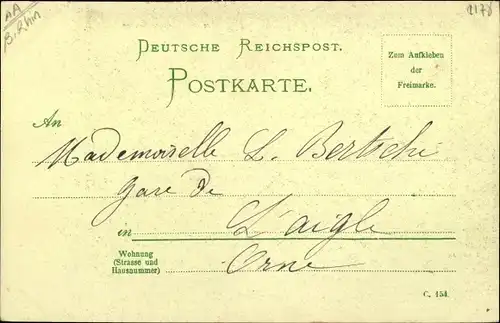 AA
B. Rhin
DEUTSCHE REICHSPOST.
POSTKARTE.
Zum Aufkleben
der
Freimarke.
An
Mademoiselle L. Bertschi
Gare de
in L'aigle
Wohnung
(Strasse und
Hausnummer)
Orne
C. 154.